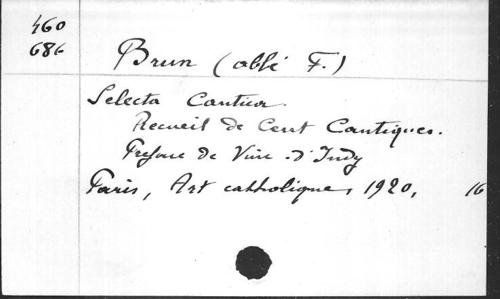 460
686
Brun (abbé F.)
Selecta Cantica
Recueil de Cent Cantiques.
Preface de Vinc. d'Indy
Paris, Art catholique, 1920, 16